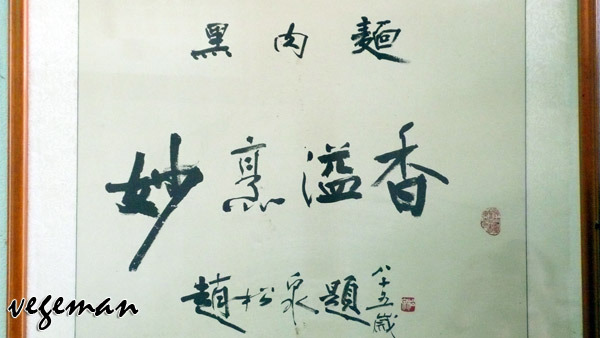 黑肉麵
妙烹溢香
趙松泉題 八十五歲
vegeman